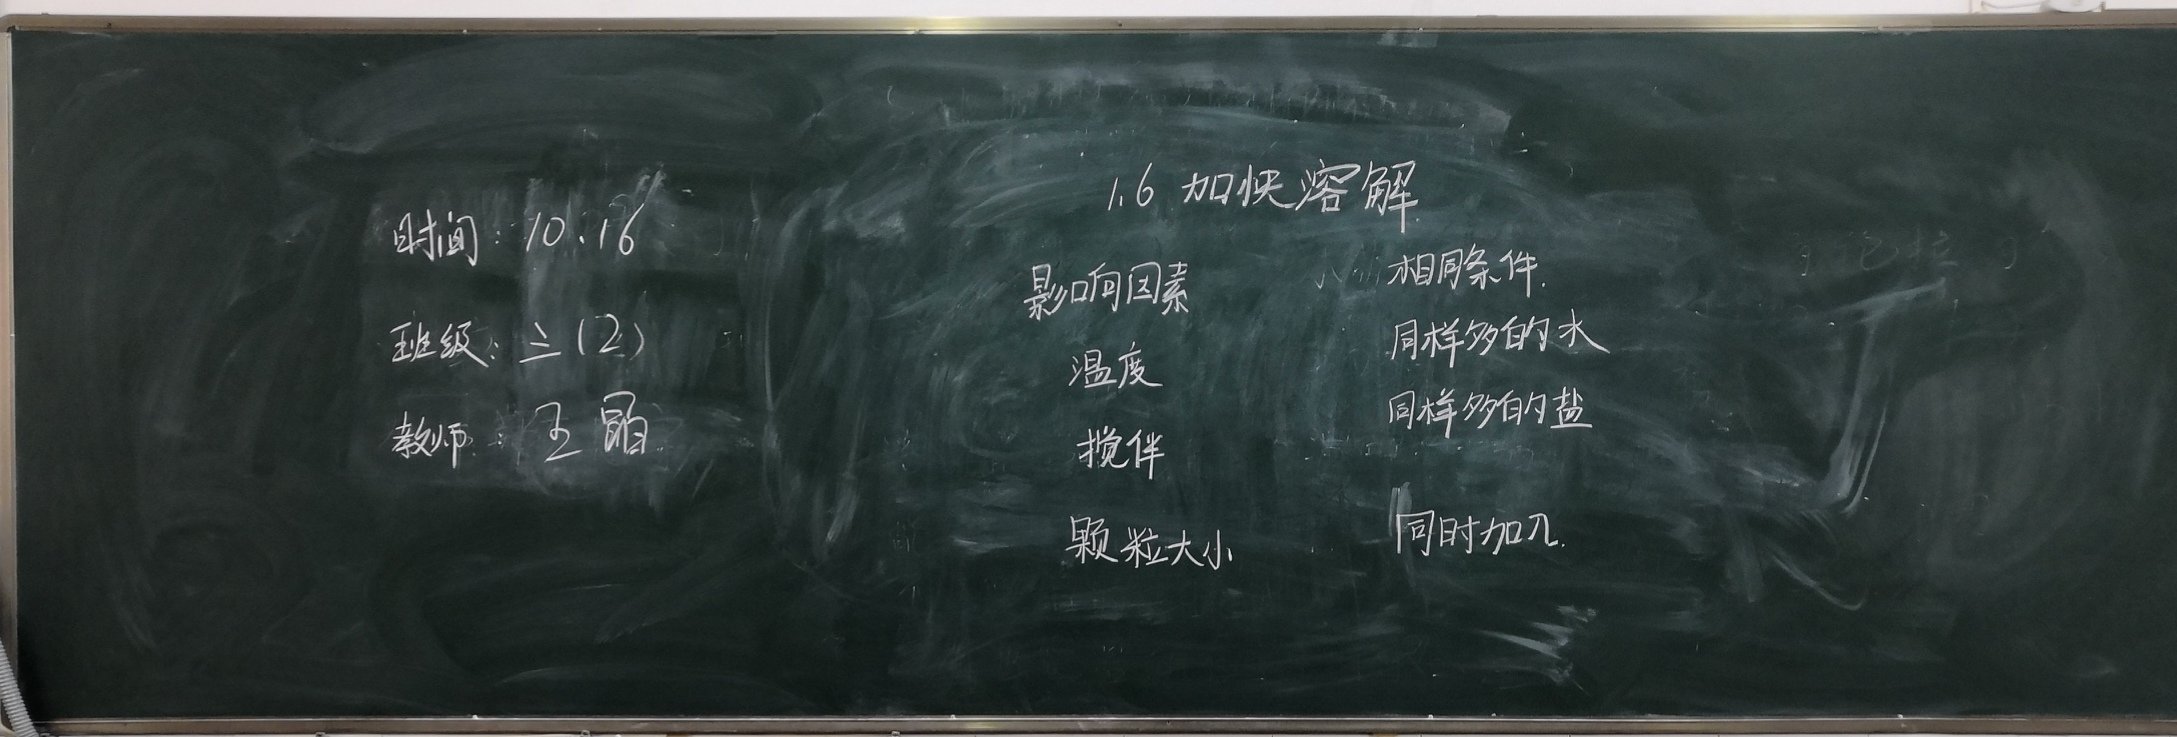 时间：10.16
班级：三（2）
教师：王晶
1.6 加快溶解
影响因素
温度
搅伴
颗粒大小
相同条件.
同样多的水
同样多的盐
同时加入.